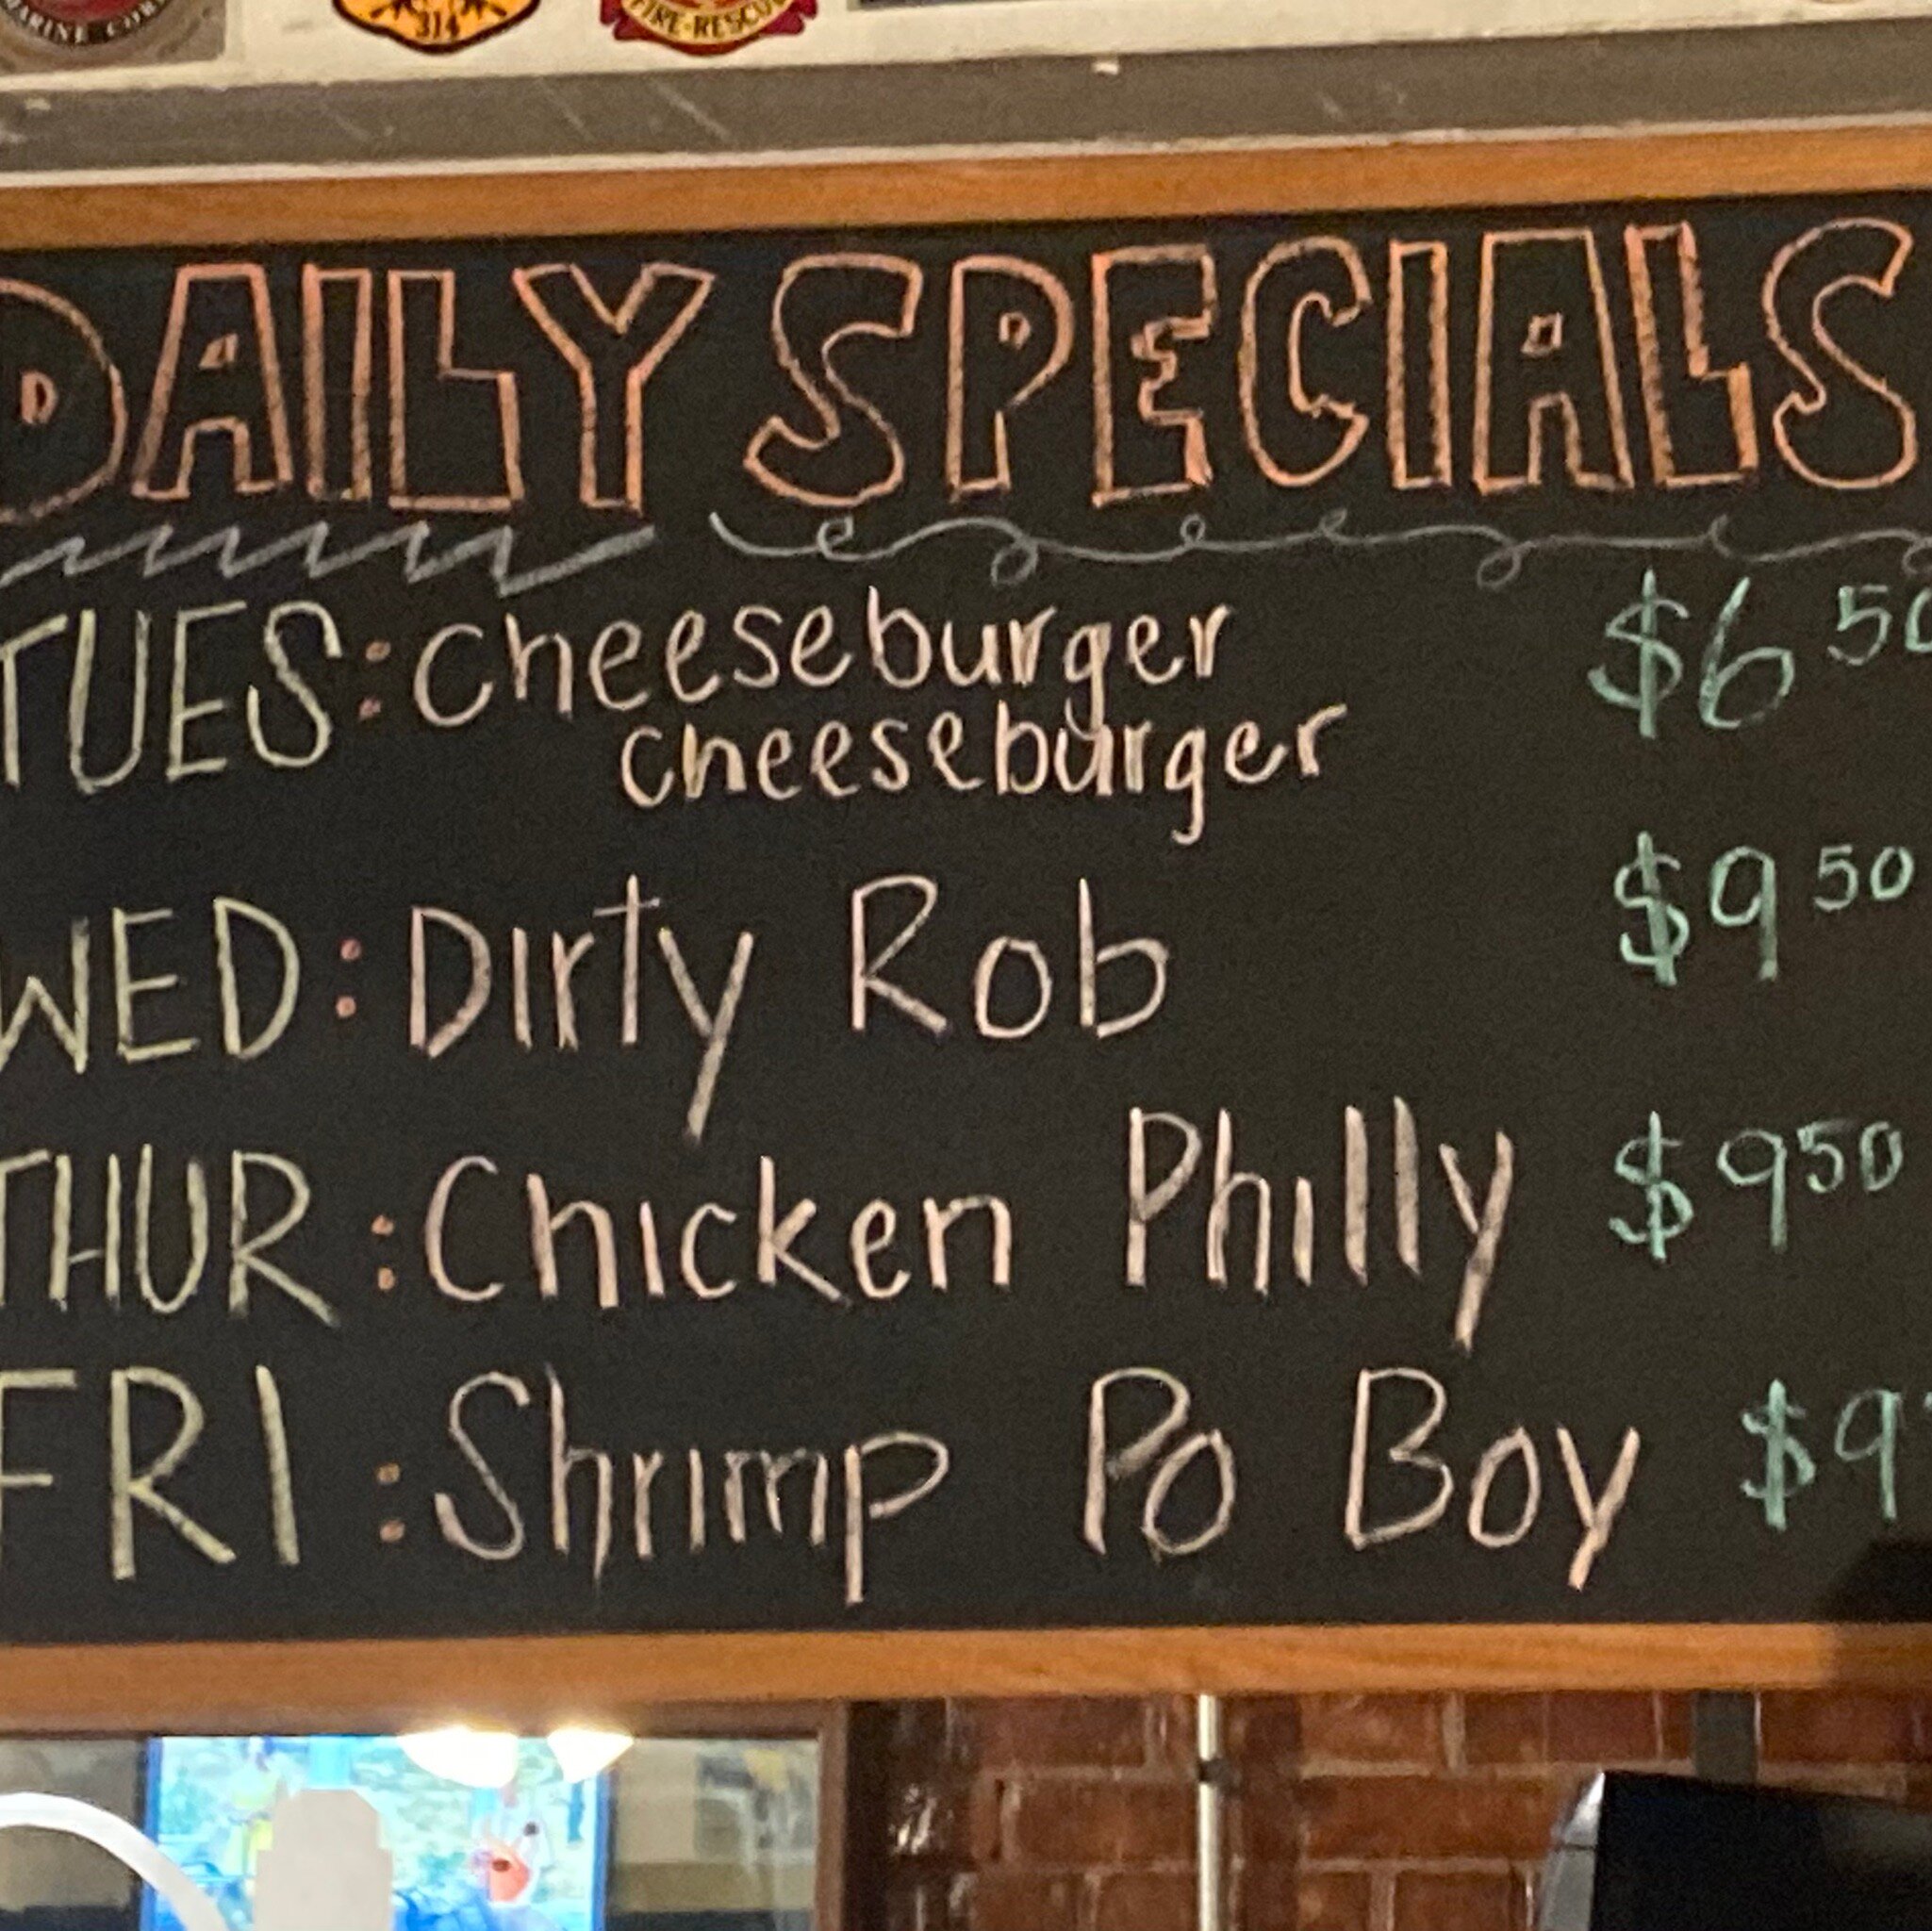 MARINE CORPS
314
FIRE-RESCUE
DAILY SPECIALS
TUES: Cheeseburger $6 50
cheeseburger
WED: Dirty Rob $9 50
THUR: Chicken Philly $9 50
FRI: Shrimp Po Boy $9